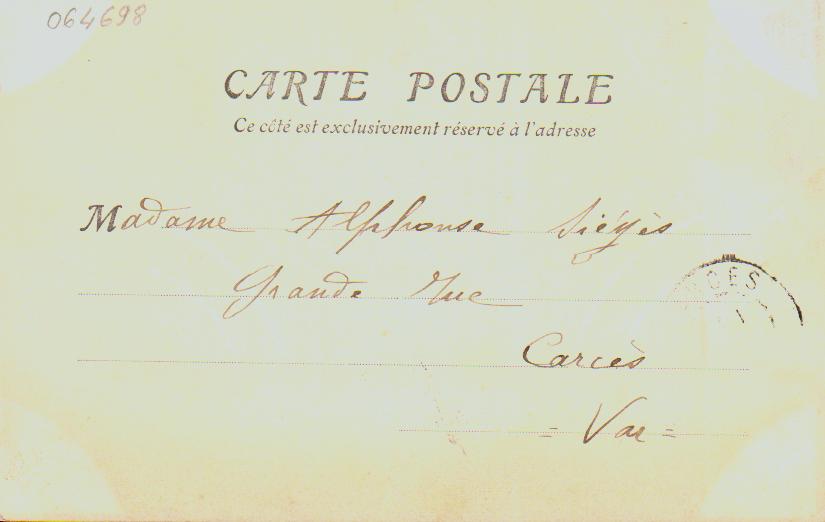 064698
CARTE POSTALE
Ce côté est exclusivement réservé à l'adresse
Madame Alphonse Siéyès
Grande Rue
Carcès
= Var =